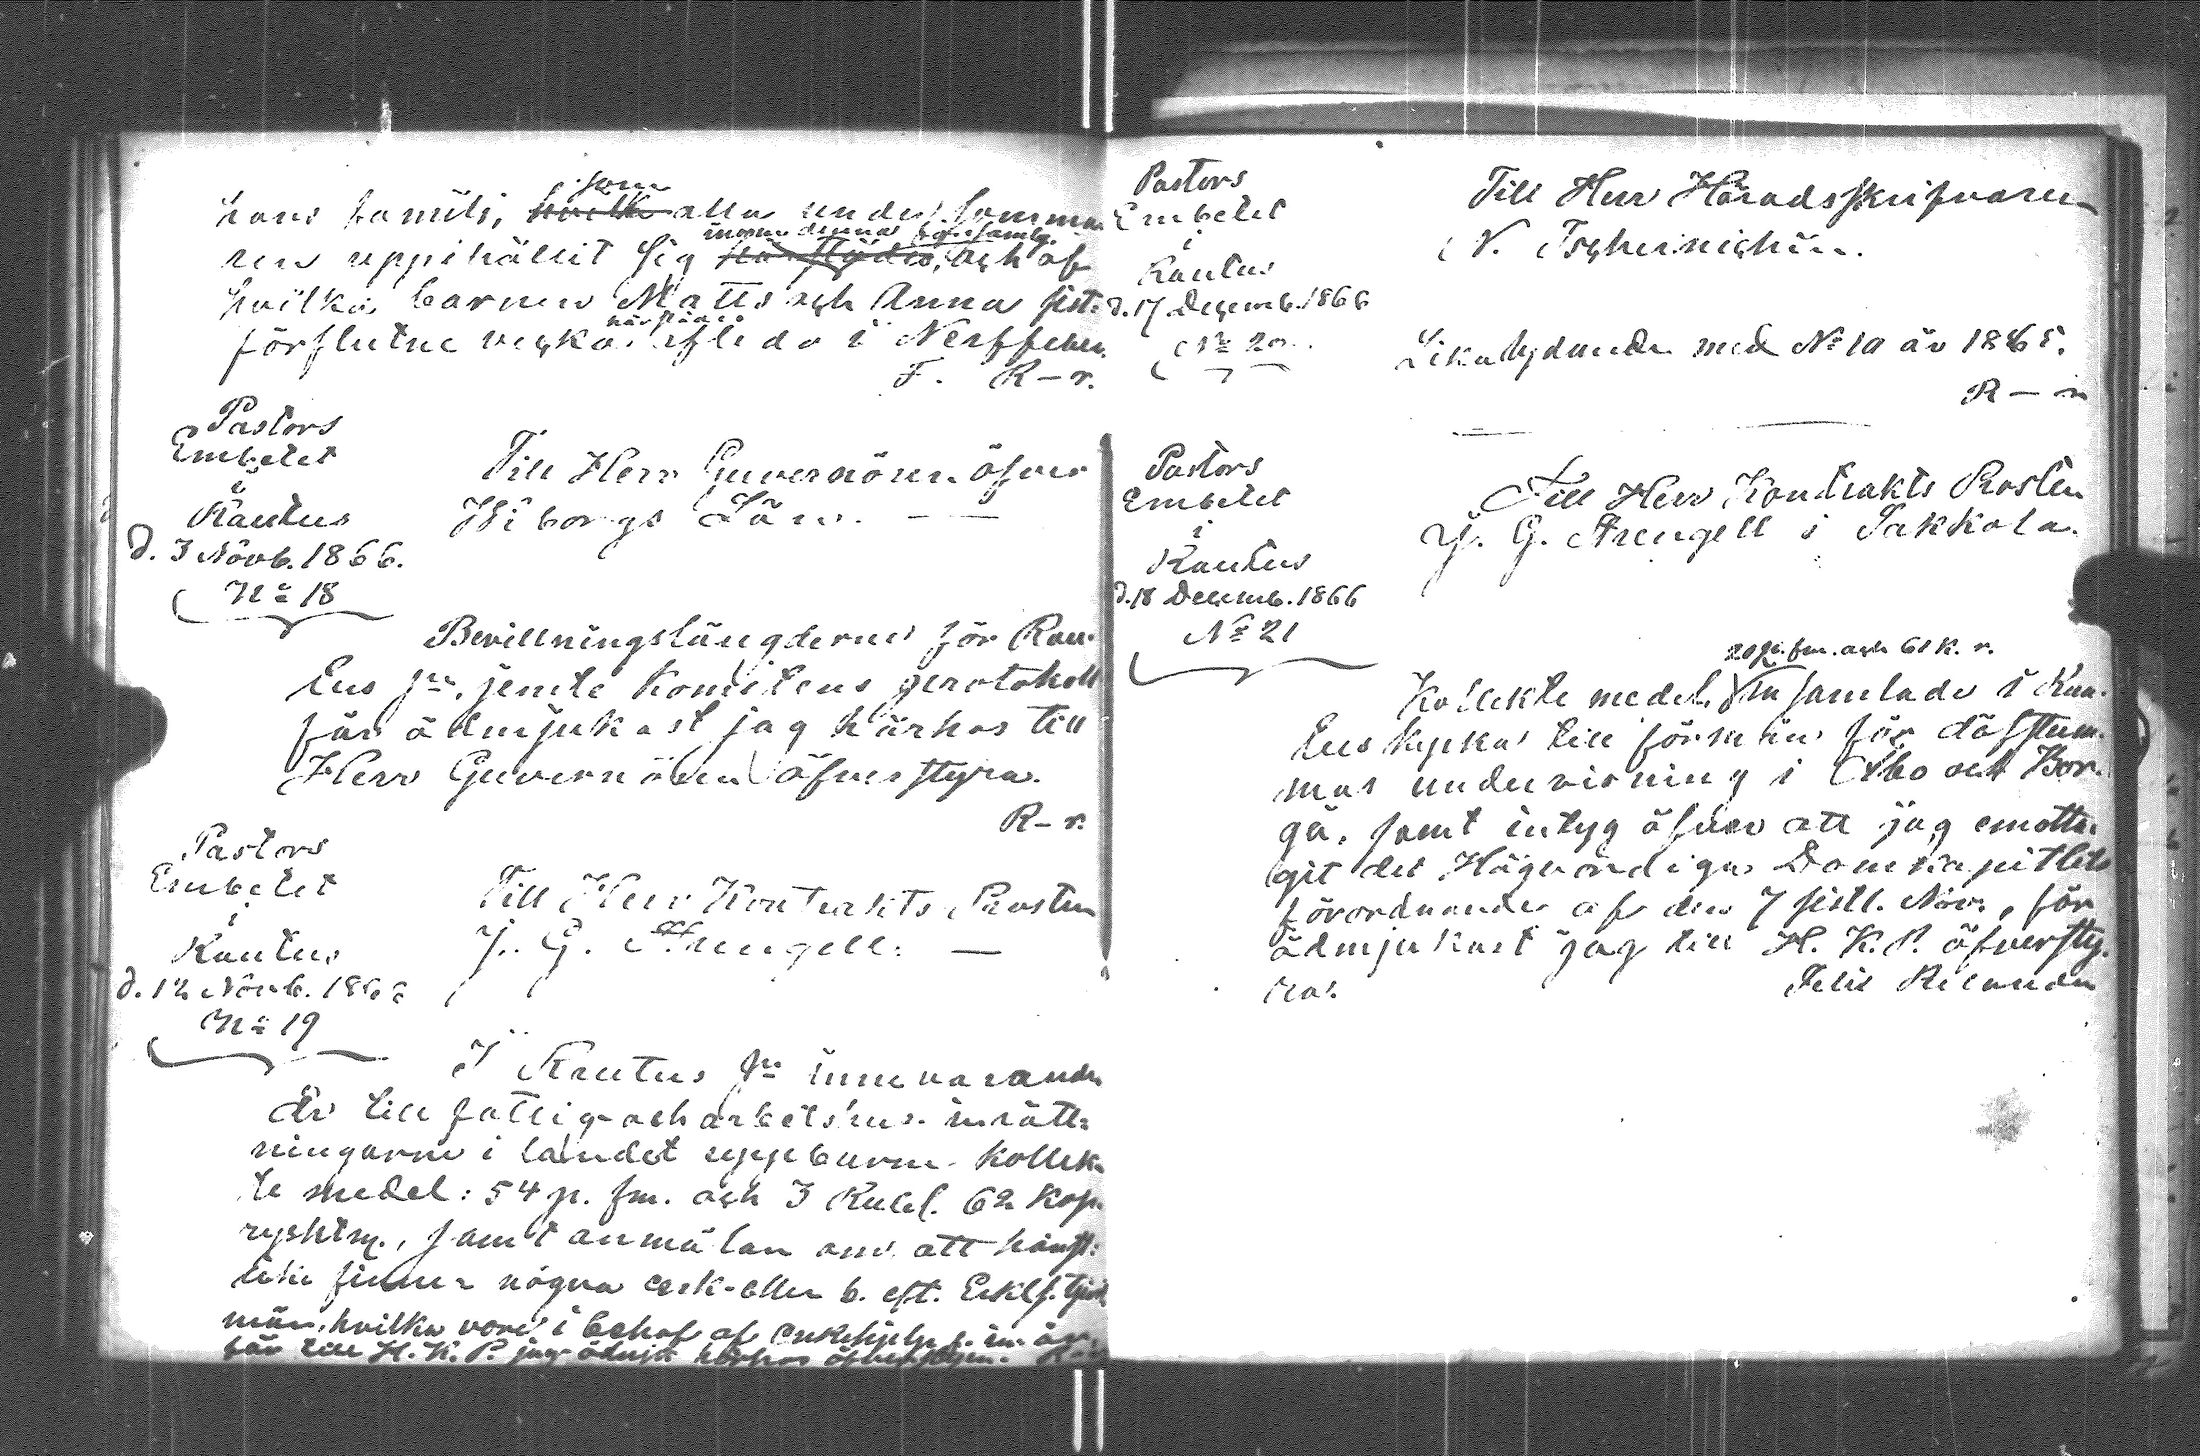 som
hans familj, hvilk alla under somma-
ren uppehållit sig härstädes, och af
hvilka barnen Matts och Anna sist-
härstädes
förflutne vecka aflido i
F. R-r.
Pastors
Embetet
i
Rautus
d. 3 Novb. 1866.
N:o 18
Till Herr Guvernören öfver
Wiborgs Län. —
Bevillningslängderne för Rau-
tus jemte komitens protokoll
får ödmjukast jag härhos till
Herr Guvernören öfverstyra.
R-r.
Pastors
Embetet
i
Rautus
d. 12 Novb. 1866
N:o 19
Till Herr Kontrakts Prosten
J. G. Strengell. —
I Rautus innevarande
år till fattig- och arbetshus-inrätt-
ningarne i landet uppburne kollek-
te medel: 54 p. fm. och 3 Rubl. 62 kop.
ryskt m., samt anmälan om att härst:
icke finnes några enk- eller b. eft.
män, hvilka vore i behof af enkehjelp
får till H. K. P. jag ödmjk härhos öfverstyra. R-r
Pastors
Embetet
i
Rautus
d. 17 Decemb. 1866
N:o 20
Till Herr Häradsskrifvaren
N. Tschernichin.
Likalydande med N:o 10 år 1865.
R — r
Pastors
Embetet
i
Rautus
d. 18 Decemb. 1866
N:o 21
Till Herr Kontrakts Prosten
J. G. Strengell i Sakkola.
20 p. fm. och 61 k. r.
Kollekte medel, insamlade i Rau-
tus kyrka till förmån för döfstum-
mas undervisning i Åbo och Bor-
gå, samt intyg öfver att jag emotta-
git det Högvördiga Domkapitlets
förordnande af den 7 sistl. Nov., får
ödmjukast jag till H. K. P. öfversty-
ra.
Felix Relander